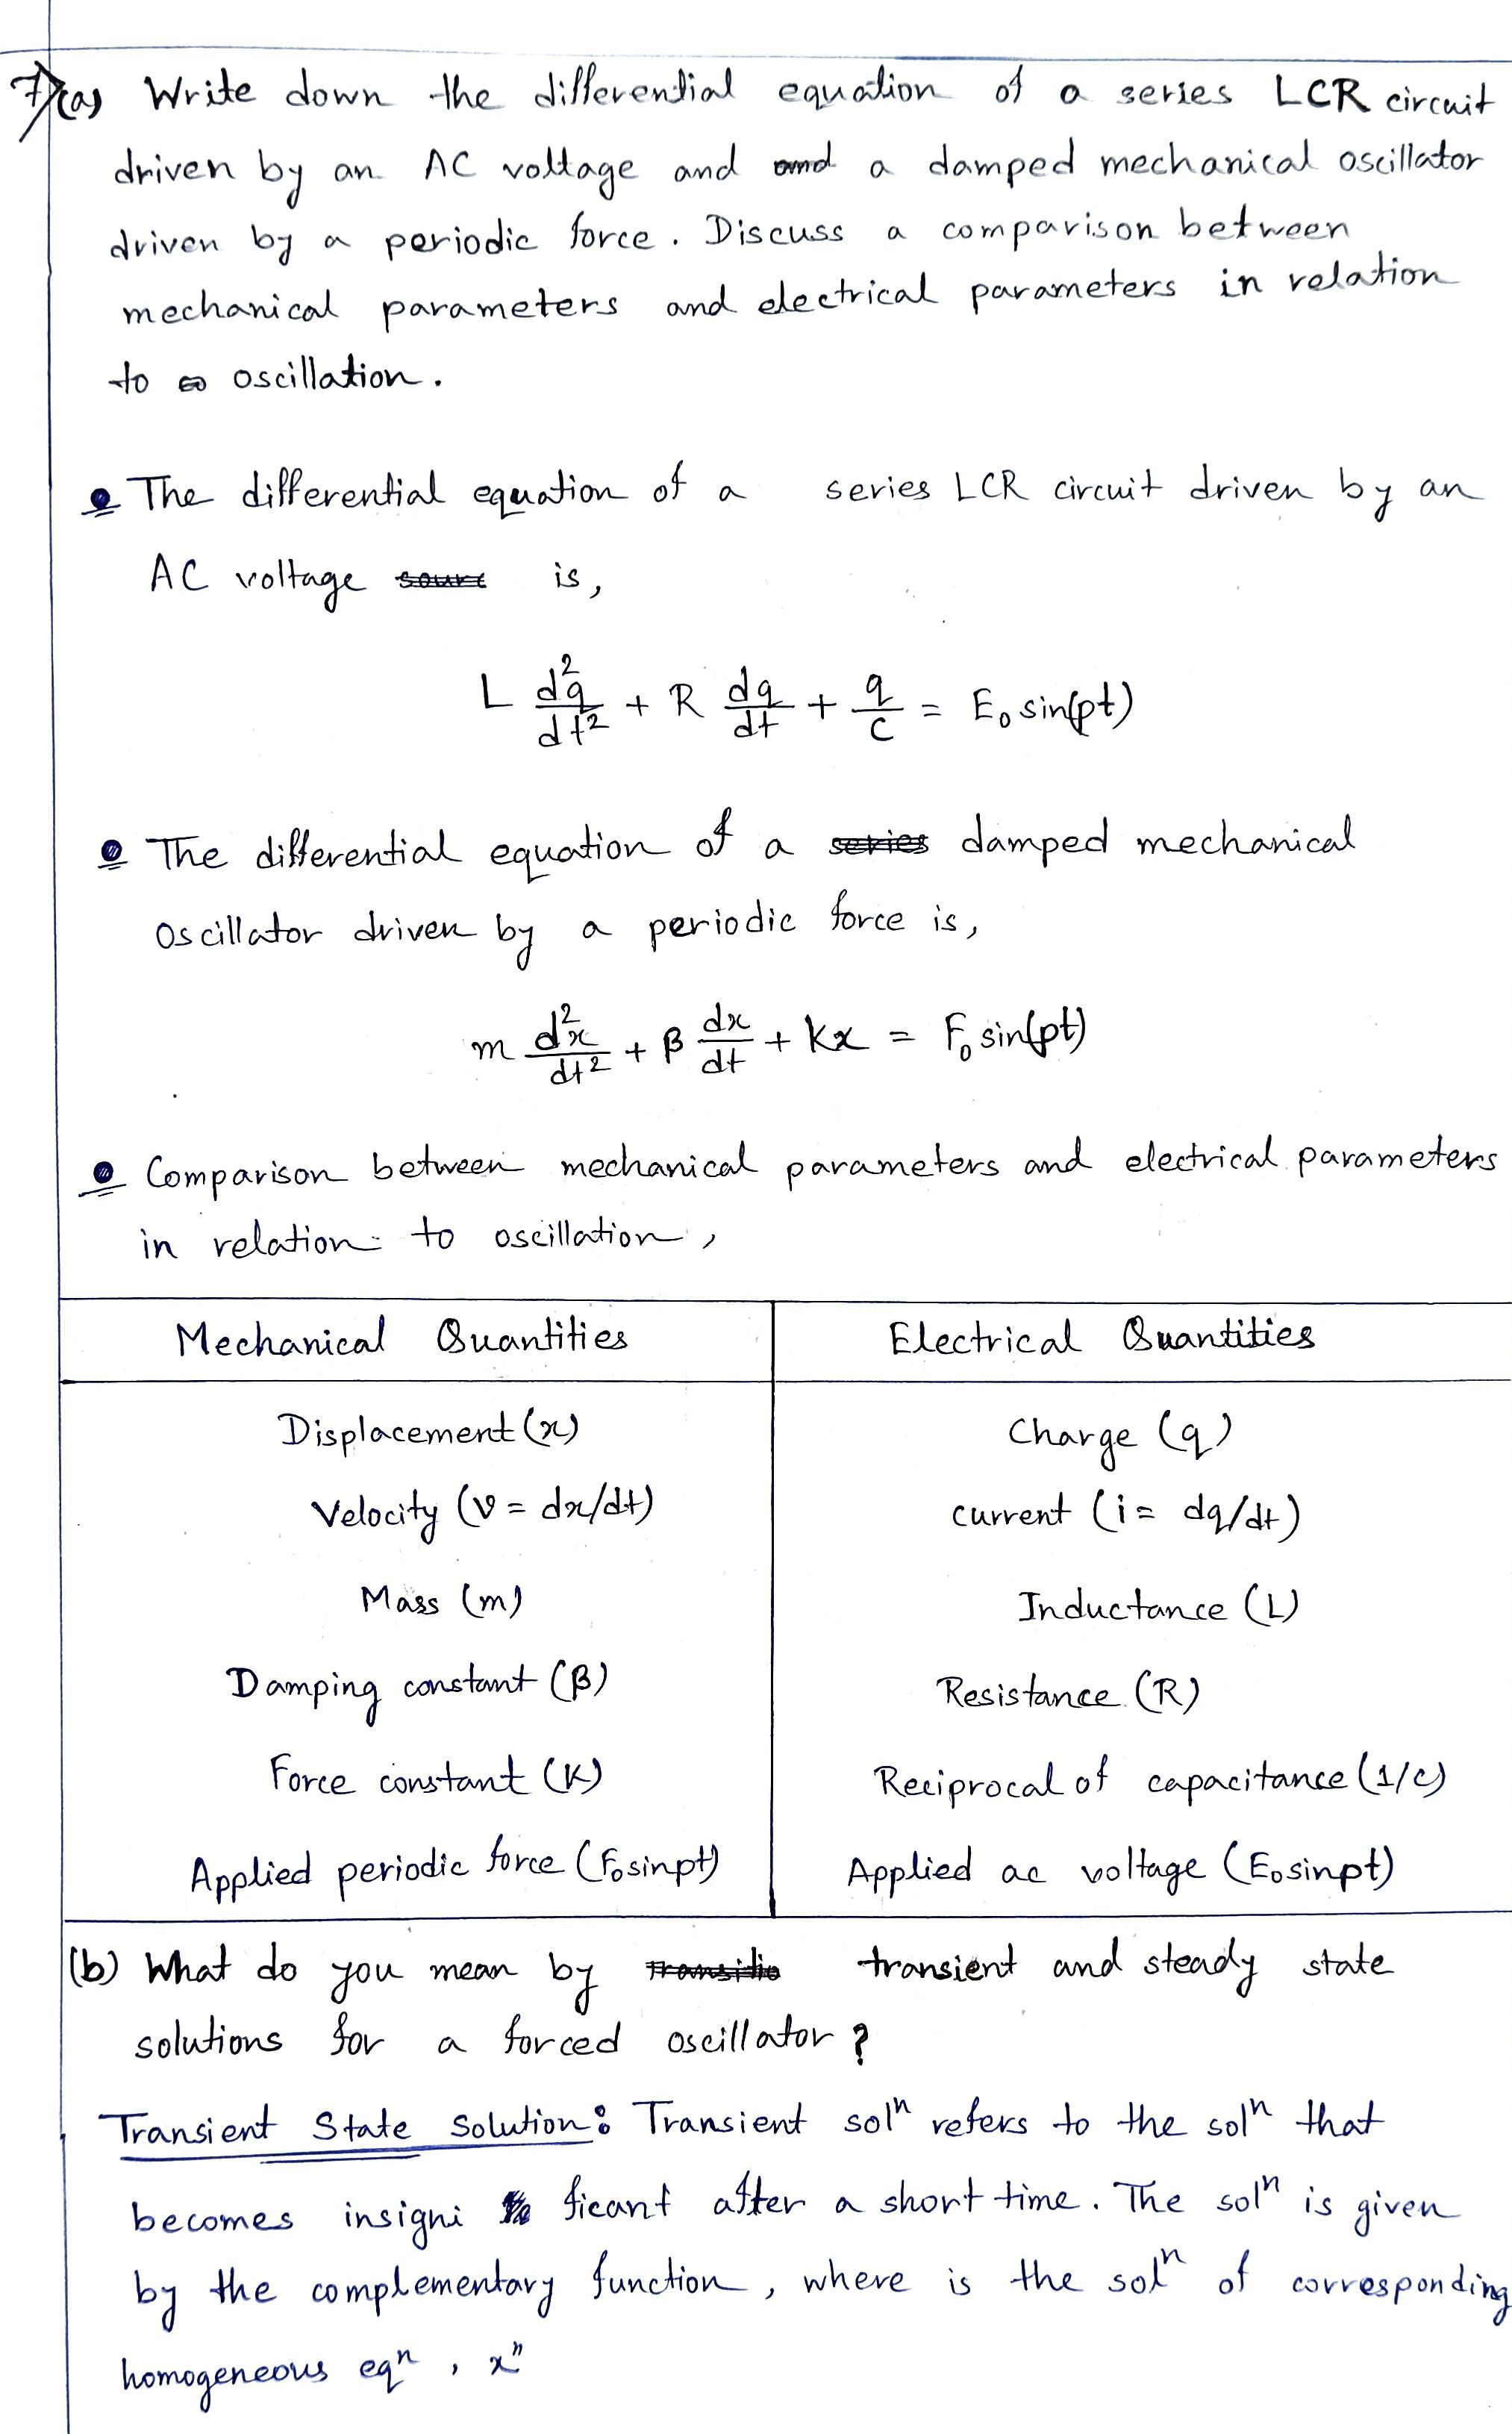 7)(a) Write down the differential equation of a series LCR circuit
driven by an AC voltage and and a damped mechanical oscillator
driven by a periodic force. Discuss a comparison between
mechanical parameters and electrical parameters in relation
to oscillation.
The differential equation of a series LCR circuit driven by an
AC voltage is,
L d²q/dt² + R dq/dt + q/C = E₀ sin(pt)
The differential equation of a series damped mechanical
Oscillator driven by a periodic force is,
m d²x/dt² + β dx/dt + Kx = F₀ sin(pt)
Comparison between mechanical parameters and electrical parameters
in relation to oscillation,
Mechanical Quantities Electrical Quantities
Displacement (x) Charge (q)
Velocity (v = dx/dt) current (i = dq/dt)
Mass (m) Inductance (L)
Damping constant (β) Resistance (R)
Force constant (K) Reciprocal of capacitance (1/C)
Applied periodic force (F₀sinpt) Applied ac voltage (E₀sinpt)
(b) What do you mean by transient and steady state
solutions for a forced oscillator?
Transient State Solution: Transient solⁿ refers to the solⁿ that
becomes insigni ficant after a short time. The solⁿ is given
by the complementary function, where is the solⁿ of corresponding
homogeneous eqⁿ, x"